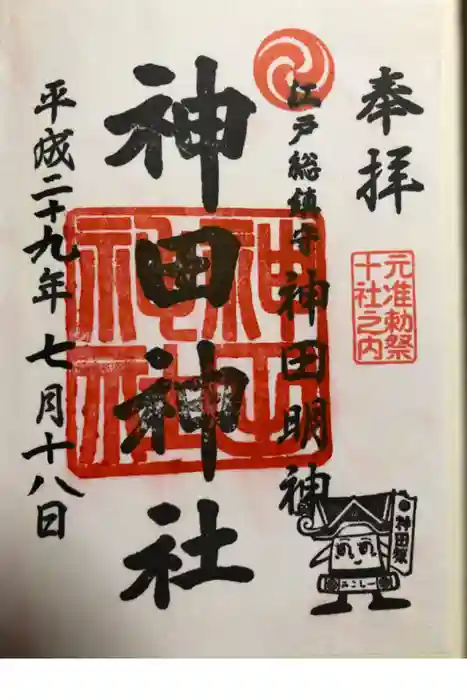 奉拝
元准勅祭
十社之内
江戸総鎮守 神田明神
神田神社
神田神社
平成二十九年七月十八日
神田祭
みこしー